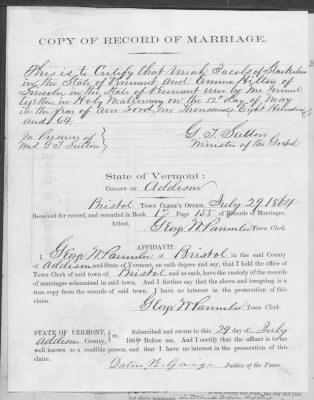 COPY OF RECORD OF MARRIAGE.
This is to Certify that Uriah Jacobs of Starksboro
in the State of Vermont and Emma Hilton of
Lincoln in the State of Vermont were by me Joined
together in Holy Matrimony on the 12th day of May
in the year of our Lord, one thousand Eight Hundred
and 64.
In presence of
Mrs G. F. Sutton
G. F. Sutton
Minister of the Gospel
State of Vermont:
COUNTY OF Addison
Bristol TOWN CLERK'S OFFICE, July 29 1864
Received for record, and recorded in Book 1st Page 155 of Records of Marriages.
Attest, Geo. W. Parmelee Town Clerk.
AFFIDAVIT.
I, Geo. W. Parmelee of Bristol in the said County
of Addison and State of Vermont, on oath depose and say, that I hold the office of
Town Clerk of said town of Bristol and as such, have the custody of the records
of marriages solemnized in said town. And I further say that the above and foregoing is a
true copy from the records of said town. I have no interest in the prosecution of this
claim.
Geo. W. Parmelee Town Clerk.
STATE OF VERMONT, ss. Subscribed and sworn to this 29 day of July
Addison County, 1864 Before me. And I certify that the affiant is to me
well known as a credible person, and that I have no interest in the prosecution of this
claim.
Justice of the Peace